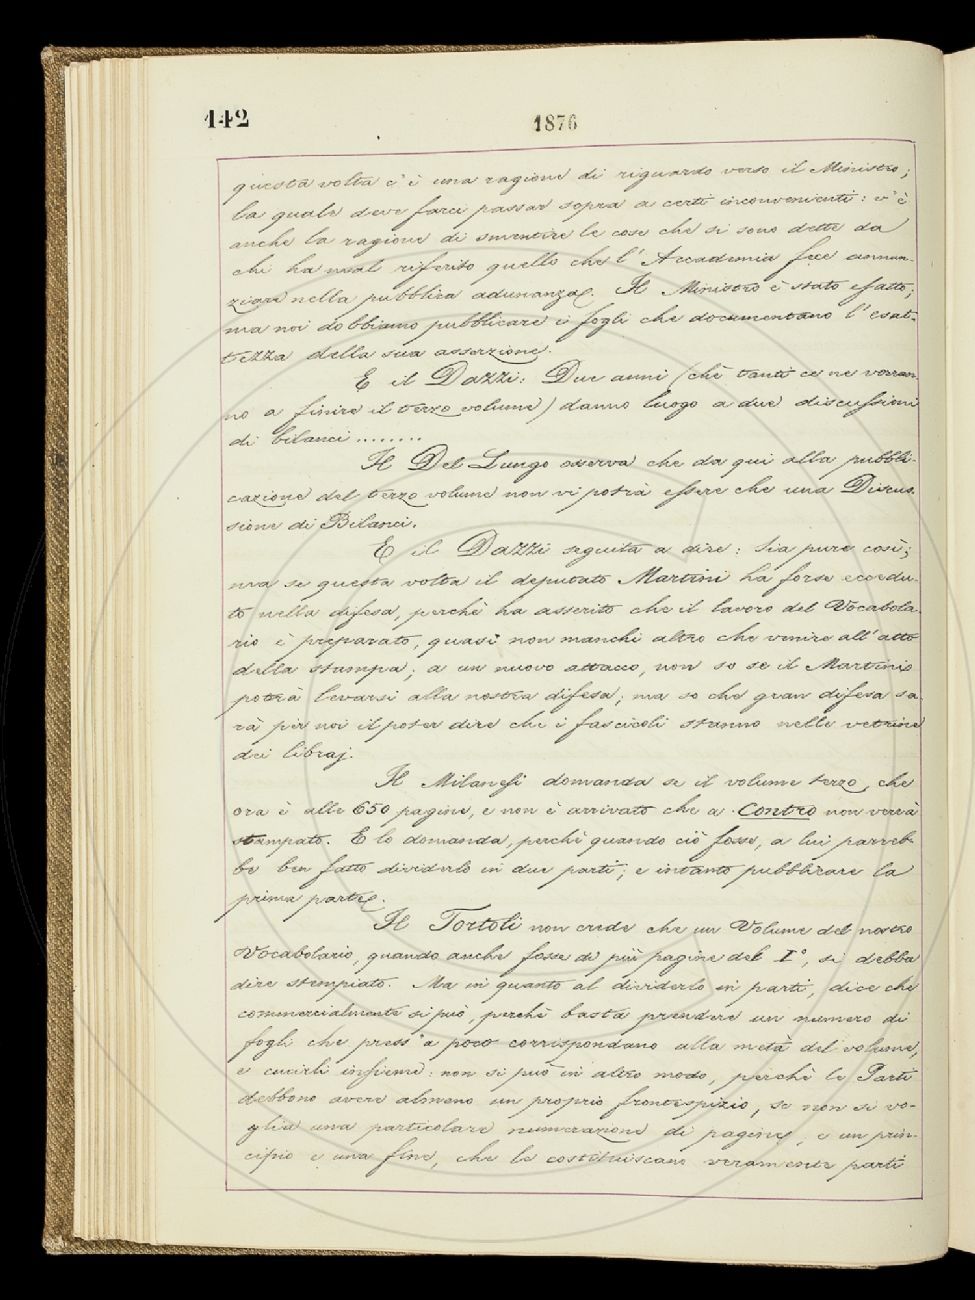 142
1876
questa volta c'è una ragione di riguardo verso il Ministro;
la quale deve farci passar sopra a certi inconvenienti: v'è
anche la ragione di smentire le cose che si sono dette da
chi ha mal riferito quello che l'Accademia fece annun-
ziare nella pubblica adunanza. Il Ministro è stato esatto;
ma noi dobbiamo pubblicare i fogli che documentano l'esat-
tezza della sua asserzione.
E il Dazzi: Due anni (chè tanti ce ne vorran-
no a finire il terzo volume) danno luogo a due discussioni
di bilanci ........
Il Del Lungo osserva che da qui alla pubbli-
cazione del terzo volume non vi potrà essere che una Discus-
sione di Bilanci.
E il Dazzi seguita a dire: Sia pure così;
ma se questa volta il deputato Martini ha forse eccedu-
to nella difesa, perchè ha asserito che il lavoro del Vocabola-
rio è preparato, quasi non manchi altro che venire all'atto
della stampa; a un nuovo attacco, non so se il Martini
potrà levarsi alla nostra difesa; ma so che gran difesa sa-
rà per noi il poter dire che i fascicoli stanno nelle vetrine
dei libraj.
Il Milanesi domanda se il volume terzo, che
ora è alle 650 pagine, e non è arrivato che a Contro non verrà
stempiato. E lo domanda, perchè quando ciò fosse, a lui parreb-
be ben fatto dividerlo in due parti; e intanto pubblicare la
prima parte.
Il Tortoli non crede che un Volume del nostro
Vocabolario, quando anche fosse di più pagine del I°, si debba
dire stempiato. Ma in quanto al dividerlo in parti, dice che
commercialmente si può, perchè basta prendere un numero di
fogli che press'a poco corrispondano alla metà del volume,
e cucirli insieme: non si può in altro modo, perchè le Parti
debbono avere almeno un proprio frontespizio, se non si vo-
glia una particolare numerazione di pagine, e un prin-
cipio e una fine, che le costituiscano veramente parti